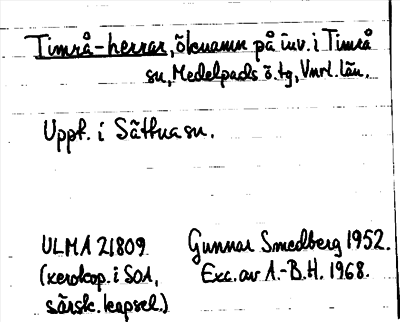 Timrå-herrar, öknamn på inv. i Timrå
sn, Medelpads ö. tg, Vnrl. län.
Uppt. i Sättna sn.
ULMA 21809
(xerokop. i SOA,
särsk. kapsel.)
Gunnar Smedberg 1952.
Exc. av A.-B.H. 1968.